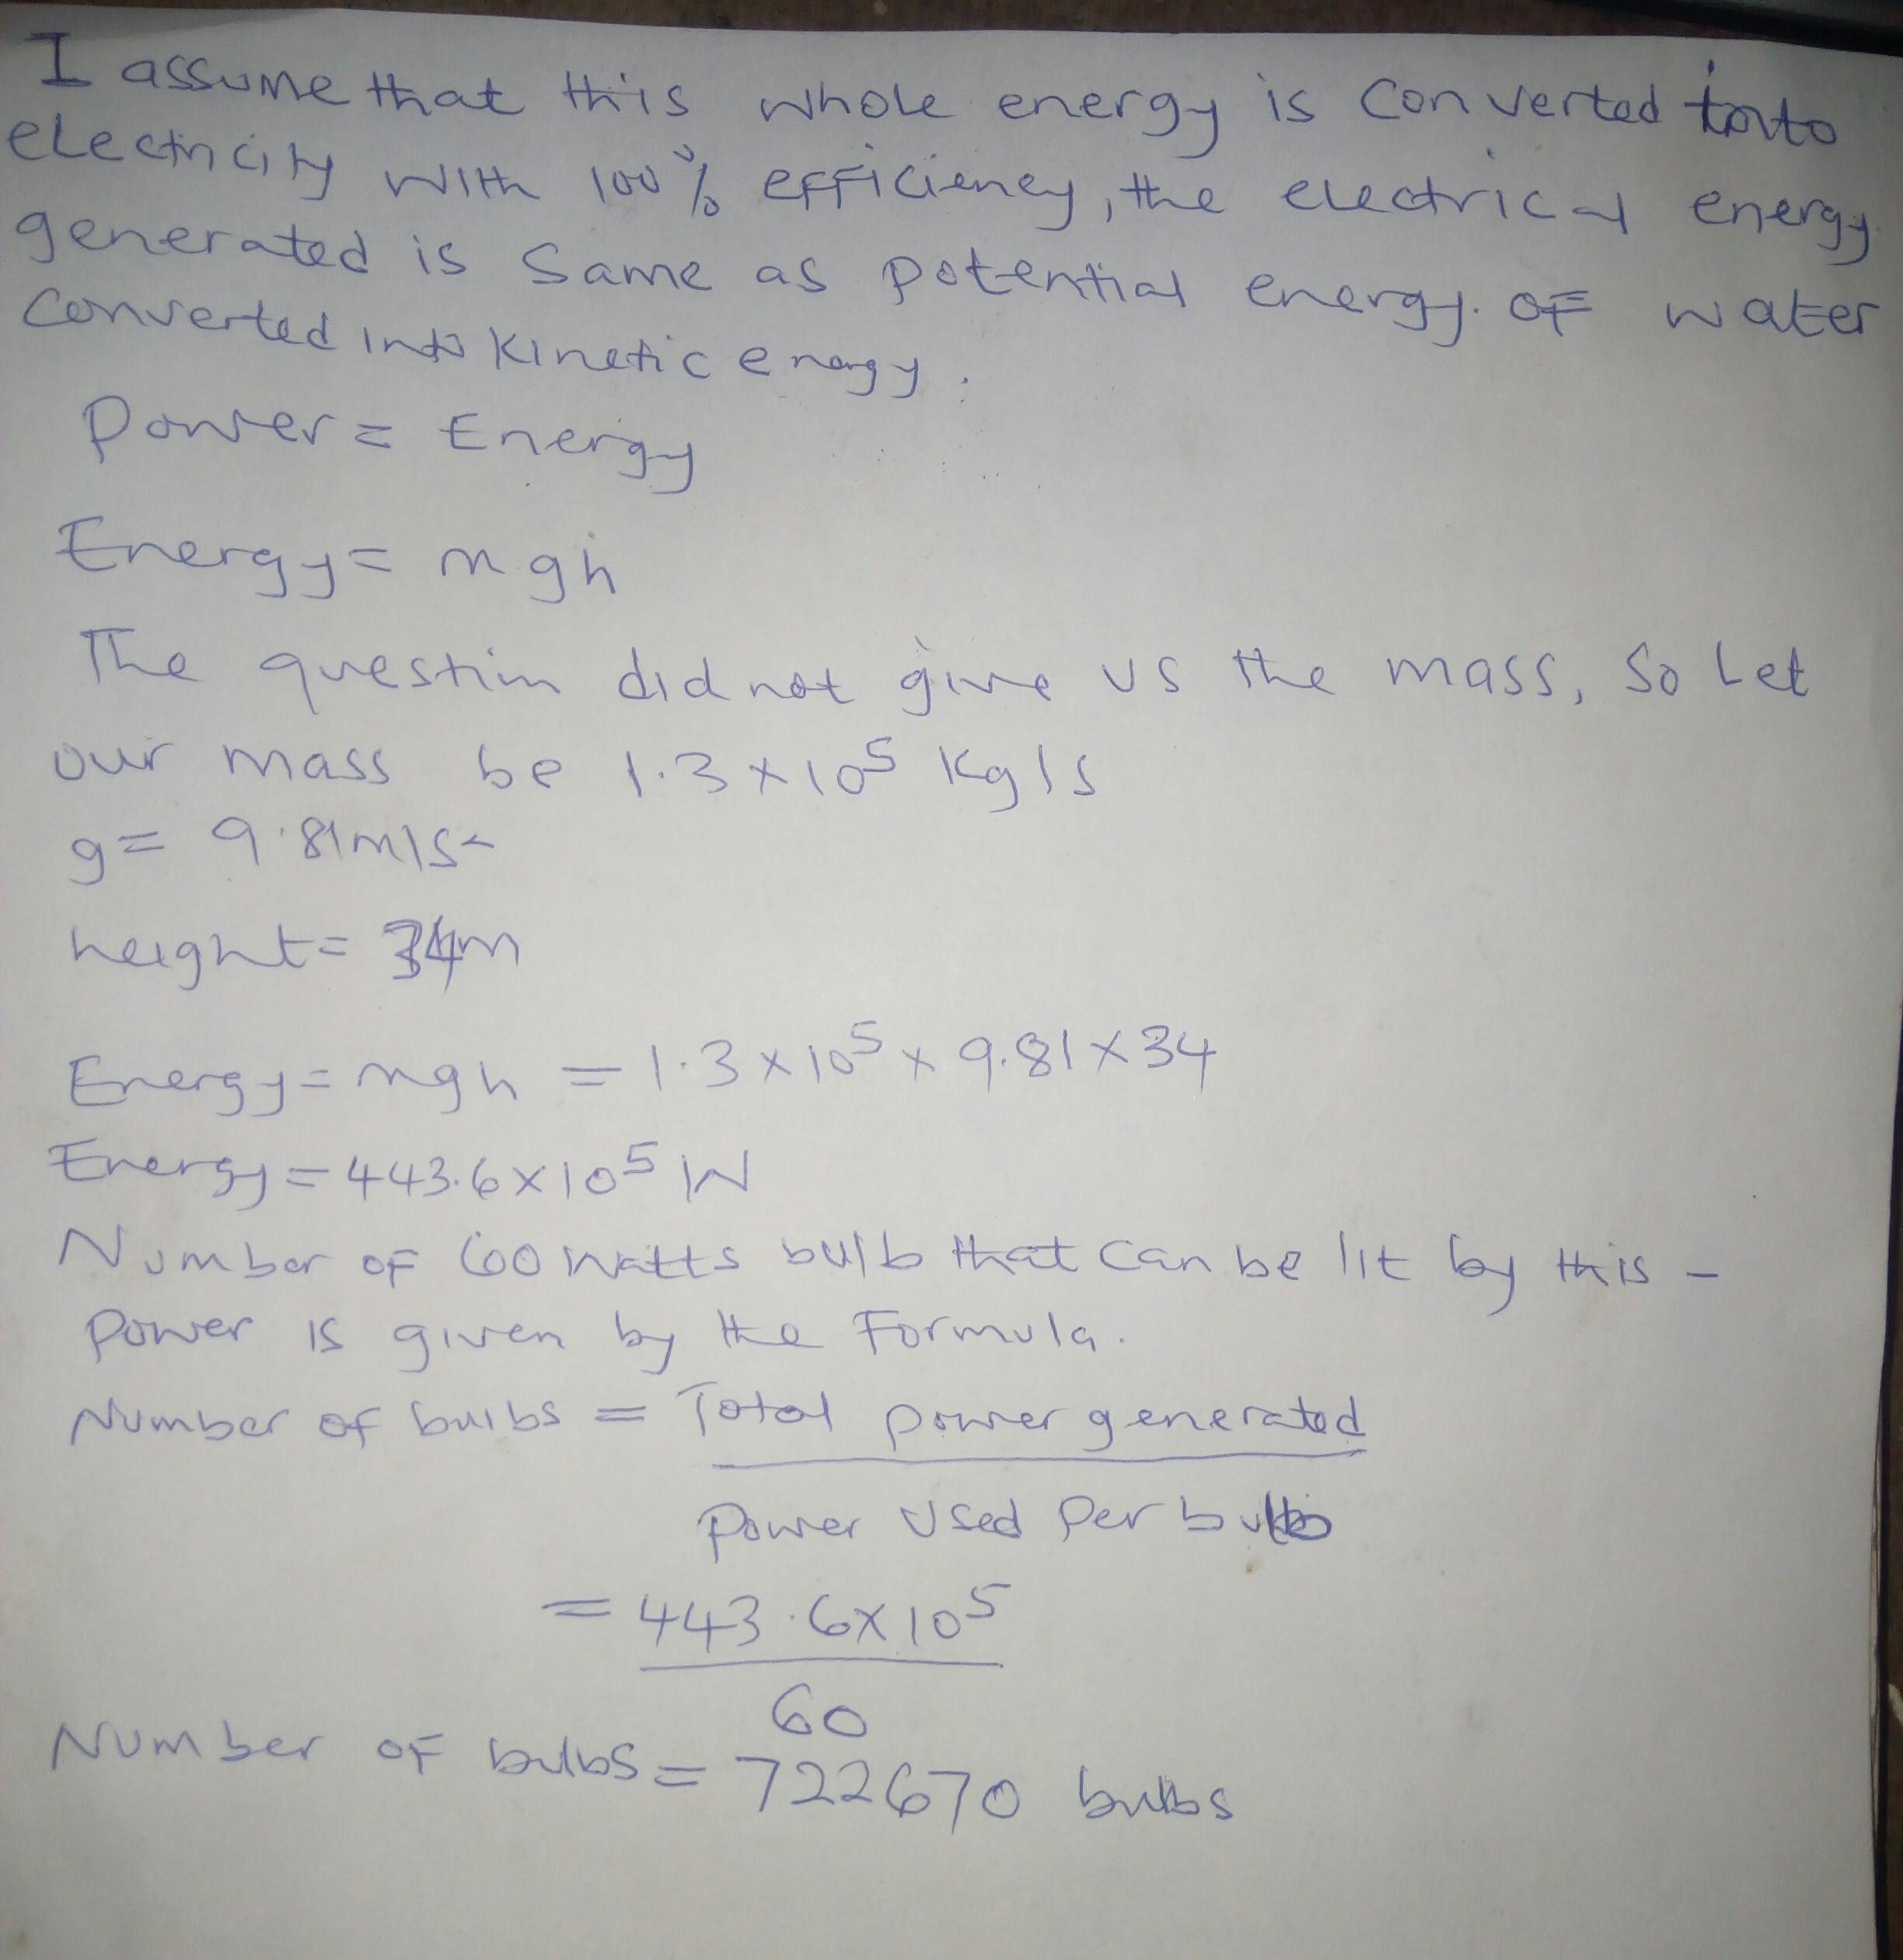 I assume that this whole energy is converted into
electricity with 100% efficiency, the electrical energy
generated is same as potential energy. of water
converted into kinetic energy.
Power = Energy
Energy = mgh
The question did not give us the mass, so let
our mass be 1.3 × 10⁵ kg/s
g = 9.81m/s²
height = 34m
Energy = mgh = 1.3 × 10⁵ × 9.81 × 34
Energy = 443.6 × 10⁵ W
Number of 60 watts bulb that can be lit by this -
power is given by the formula.
Number of bulbs = Total power generated
Power used per bulb
= 443.6 × 10⁵
60
Number of bulbs = 722670 bulbs